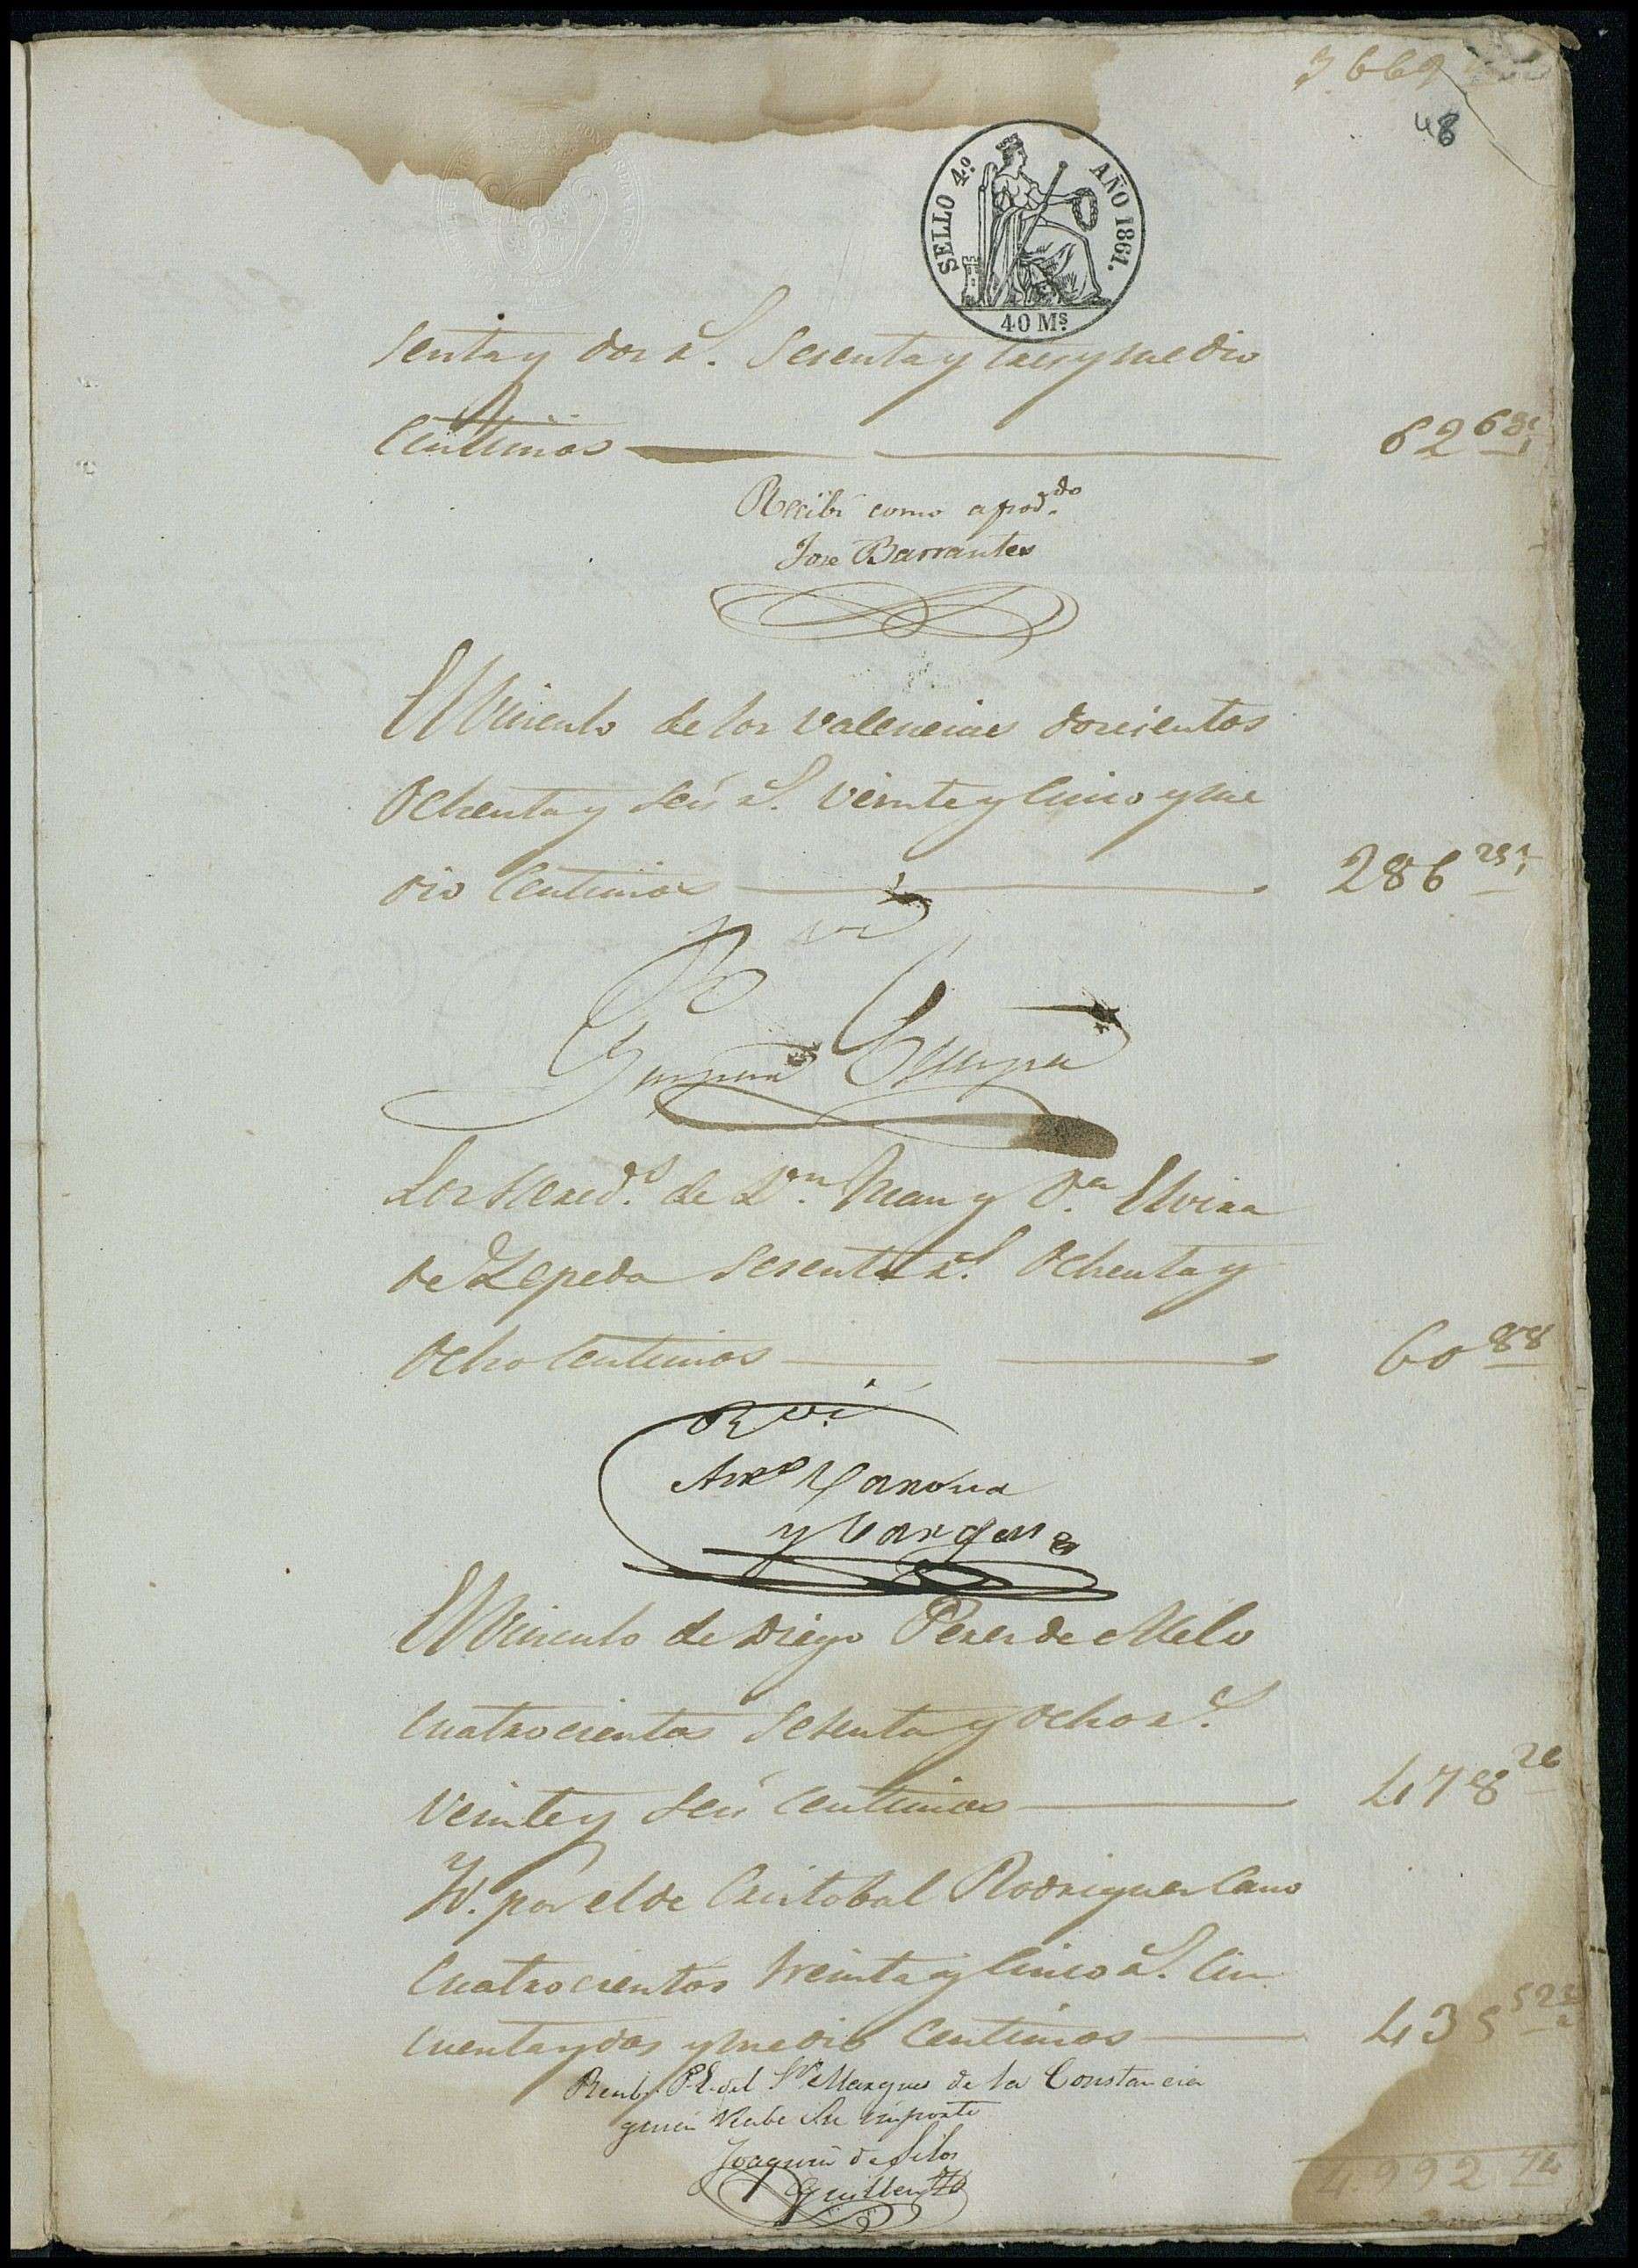 3669
48
SELLO 4º AÑO 1861.
40 Ms
senta y dos rs. sesenta y tres y medio
Centimos 62 63
Recibí como apod.do
Jose Barrantes
El Vinculo de los Valencias doscientos
Ochenta y seis rs. veinte y cinco y me
dio Centimos 286 25
Los Hered.s de Dn. Juan y Da. Elvira
de Zepeda sesenta rs. Ochenta y
Ocho Centimos 60 88
Rví
y Vargas
El Vinculo de Diego Perez de Melo
cuatrocientos setenta y ocho rs.
veinte y seis centimos 478 26
Yd. por el de Cristobal Rodriguez Cano
Cuatrocientos treinta y cinco rs. cin
cuenta y dos y medio centimos 435 52
Recibí P.E. del Sr. Marques de la Constancia
quien recibe su importe
Joaquin de Silos
Guillen
4.992 74